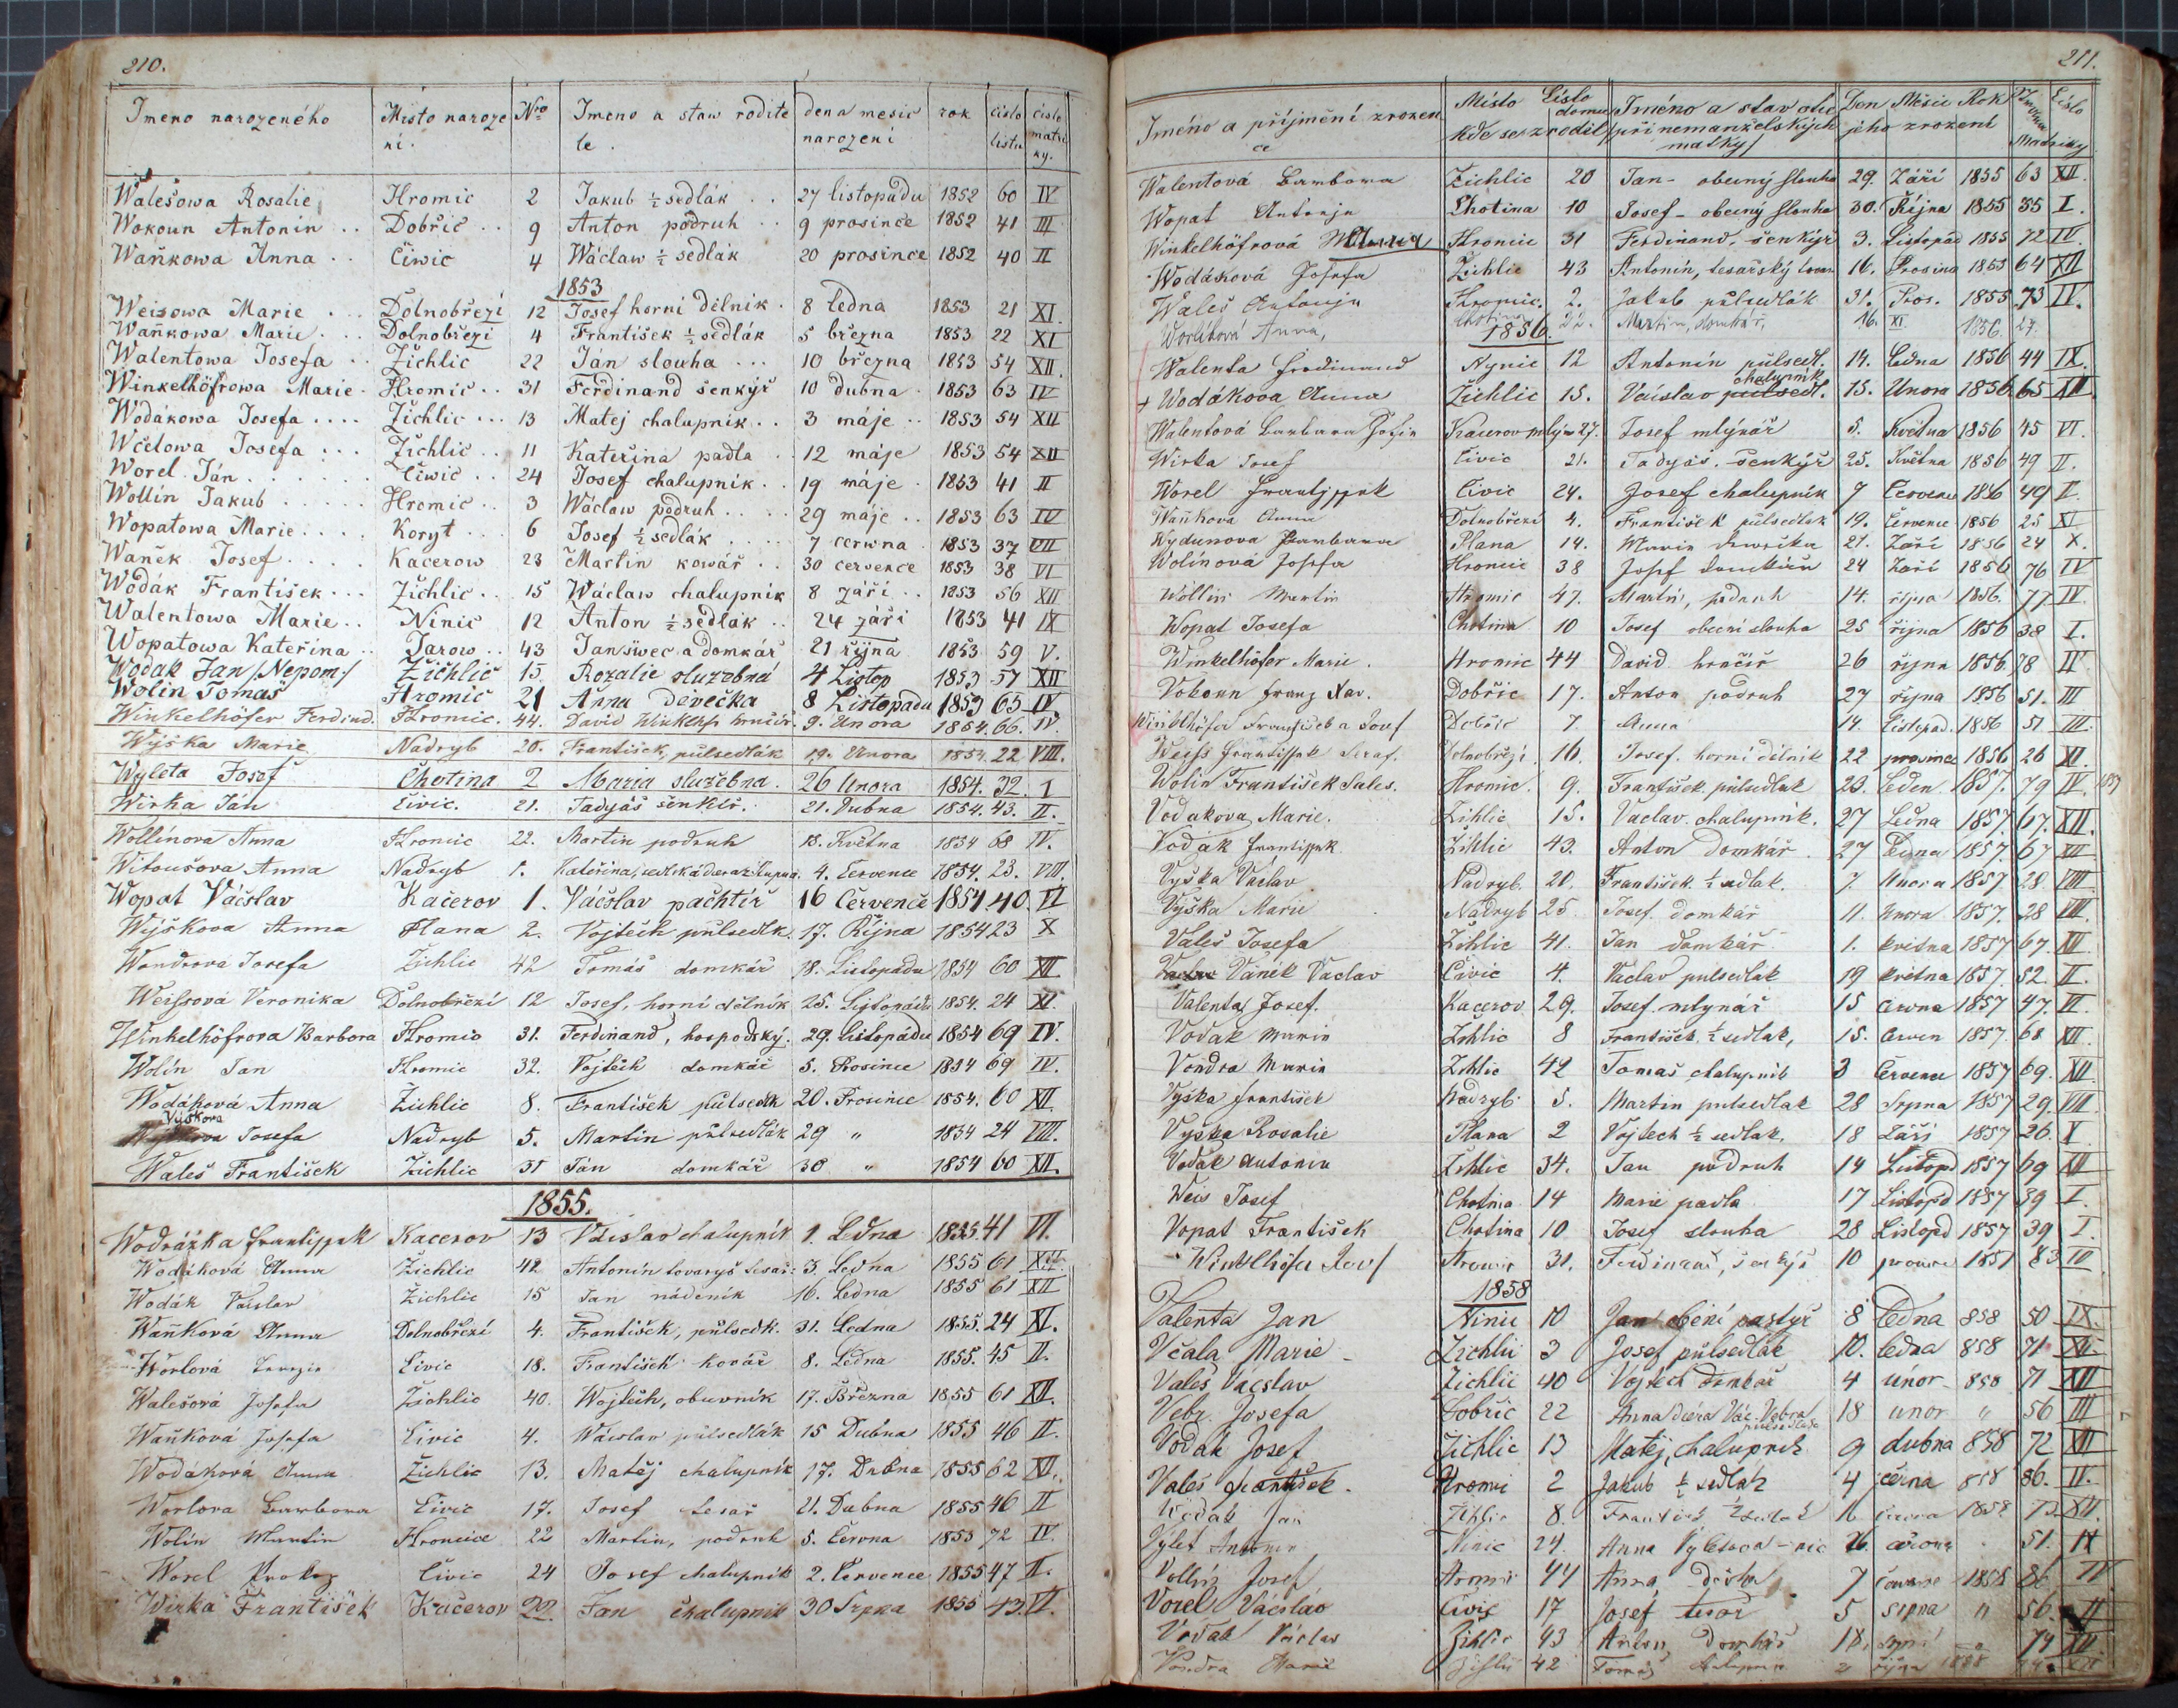 210.
Imeno narozeného Misto naroze Nro Imeno a staw rodite dena mesic rok čislo čislo
ni. le. narozeni listu matri
ky.
Walešowa Rosalie Hromic 2 Jakub ½ sedlák 27 listopadu 1852 60 IV
Wokoun Antonin Dobřič 9 Anton podruh 9 prosince 1852 41 III
Waňkowa Anna Čiwic 4 Wáclaw ½ sedlák 20 prosince 1852 40 II
1853
Weisowa Marie Dolnobřezi 12 Josef horni dělnik 8 ledna 1853 21 XI
Waňkowa Marie Dolnobřezi 4 František ½ sedlák 5 března 1853 22 XI
Walentowa Josefa Žichlic 22 Ján slouha 10 března 1853 54 XII
Winkelhöfrowa Marie Hromic 31 Ferdinand šenkýř 10 dubna 1853 63 IV
Wodákowa Josefa Žichlic 13 Matej chalupnik 3 máje 1853 54 XII
Wčelowa Josefa Žichlic 11 Kateřina padla 12 máje 1853 54 XII
Worel Ján Čiwic 24 Josef chalupnik 19 máje 1853 41 II
Wollin Jakub Hromic 3 Wáclaw podruh 29 máje 1853 63 IV
Wopatowa Marie Koryt 6 Josef ½ sedlák 7 čerwna 1853 37 VII
Waněk Josef Kacerow 23 Martin kowář 30 července 1853 38 VI
Wodák František Žichlic 15 Wáclaw chalupnik 8 záři 1853 56 XII
Walentowa Marie Ninic 12 Anton ½ sedlák 24 záři 1853 41 IX
Wopatowa Kateřina Jarow 43 Jan šwec a domkář 21 řijna 1853 59 V.
Wodak Jan /Nepom:/ Žichlic 15 Rozalie služebná 4 Listop 1853 57 XII
Wolin Tomaš Hromic 21 Anna děvečka 8 Listopadu 1853 65 IV
Winkelhöfer Ferdind. Hromic. 44. David Winklhf hrnčiř. 9. Unora 1854. 66. IV.
Wýška Marie Nadryb 20. František, půlsedlák 19. Unora 1854. 22 VIII.
Wyleta Josef Chotina 2 Maria služebna. 26 Unora 1854. 32. I
Wirka Ján Čivic. 21. Tadyáš šenkéř. 21. Dubna 1854. 43. II.
Wollinova Anna Hromic 22. Martin podruh 18. Května 1854 68 IV.
Witoušova Anna Nadryb 1. 4. Července 1854. 23. VIII.
Wopat Váčslav Kačerov 1. Váčslav pachtíř 16 Červenče 1854. 40. VI
Wýškova Anna Plana 2. Vojtěch půlsedlk. 17. Října 1854 23 X
Wondrová Josefa Žichlic 42 Tomáš domkář 18. Listopadu 1854 60 XII
Weissová Veronika Dolnobřezí 12 Josef, horní dělník 25. Listopadu 1854. 24 XI
Winkelhöfrova Barbora Hromic 31. Ferdinand, hospodský. 29. Listopadu 1854 69 IV.
Wolín Jan Hromic 32. Vojtěch domkář 5. Prosince 1854 69 IV.
Wodáková Anna Žichlic 8. František půlsedlk 20. Prosince 1854. 60 XII
Výškova
Josefa Nadryb 5. Martin půlsedlák 29 " 1854 24 VIII.
Waleš František Žichlic 31 Ján domkář 30 " 1854 60 XII.
1855.
Wodrážka Frantissek Kacerov 13 Václav chalupník 1. Ledna 1855 41 VI.
Wodáková Anna Žichlic 42 Antonín tovaryš tesař: 3. Ledna 1855 61 XII
Wodák Václav Žichlic 15 Jan nádeník 16. Ledna 1855 61 XII
Waňková Anna Dolnobřezí 4. František, půlsedk. 31. Ledna 1855. 24 XI.
Worlová Čivic 18. František kovář 8. Ledna 1855. 45 II.
Walešová Josefa Žichlic 40. Wojtěch, obuvník 17. Března 1855 61 XII.
Waňková Josefa Čivic 4. Wácslav půlsedlák 15 Dubna 1855 46 II.
Wodáková Anna Žichlic 13. Matěj chalupník 17. Dubna 1855 62 XII.
Worlova Barbora Čivic 17. Josef tesař 21. Dubna 1855 46 II
Wolín Martin Hromice 22 Martin, podruh 5. Června 1855 72 IV.
Worel Prokop Čivic 24 Josef chalupník 2. Července 1855 47 II.
Wirka František Kačerov 22 Jan chalupník 30 Srpna 1855 43. VI.
211.
Jméno a příjmění zrozen Místo Číslo Jméno a stav otce Den Měsíc Rok Číslo
ce kde se zrodil domu /při nemanželských jeho zrození Matriky
matky/
Walentová Barbora Žichlic 20 Jan - obecný slouha 29. Září 1855 63 XII.
Wopat Antonín Chotina 10 Josef - obecný slouha 30. Října 1855 35 I.
Winkelhöfrová Hromic 31 Ferdinand, šenkýř 3. Listopad 1855 72 IV.
Wodáková Josefa Žichlic 43 Antonín, tesařský 16. Prosince 1855 64 XII
Waleš Antonín Hromic. 2. Jakub půlsedlák 31. Pros. 1855 73 IV.
Worlíková Anna, Chotina 22. Martin, domkář, 16. XI 1856 27.
1856.
Walenta Ferdinand Nynic 12 Antonín půlsedl. 14. Ledna 1856 44 IX.
chalupník
Wodákova Anna Žichlic 15. Václav půlsedl. 15. Unora 1856 65 XII.
Walentová Barbara Žofie Kacerov mlýn 27. Josef mlýnář 5. Května 1856 45 VI.
Wirka Josef Čivic 21. Tadyáš. šenkýř 25. Května 1856 49 II.
Worel Frantissek Čivic 24. Josef chalupník 7 Červenec 1856 49 II.
Waňkova Anna Dolnobřezí 4. František půlsedlak 19. Července 1856 25 XI
Wydunova Barbara Plana 14. Marie 21. Září 1856 24 X.
Wolínová Josefa Hromic 38 Josef domkář 24 Září 1856 76 IV
Wollin Martin Hromic 47. Martin, podruh 14. října 1856. 77 IV.
Wopat Josefa Chotina 10 Josef obecní slouha 25 října 1856 38 I.
Winkelhöfer Marie. Hromic 44 David hrnčíř 26 října 1856 78 IV
Vokoun Franz Xav. Dobřic 17. Anton podruh 27 října 1856 51. III
Winklhöfer František a Josef Dobřic 7. Anna 14. Listopad. 1856 51 III.
Weiss Frantissek Seraf. Dolnobřezí. 16. Josef. horní dělník 22 prosince 1856 26 XI.
Wolin František Sales. Hromic. 9. František půlsedlak 23. Leden. 1857. 79 IV.
Vodakova Marie. Žihlic 15. Vaclav chalupník. 27 Ledna 1857. 67. XII.
Vodak Frantissek Žihlic 43. Anton Domkář. 27 Ledna 1857. 67 XII
Vyška Vaclav Nadryb. 20. František ½ sedlak. 7. Unora 1857 28 VIII
Vyška Marie Nadryb 25 Josef. domkář 11. Unora 1857. 28 VIII.
Valeš Josefa Žihlic 41. Jan domkář 1. května 1857 67. XII
Vaněk Vaclav Čivic 4. Vaclav pulsedlak 19 května 1857. 52. II.
Valenta Josef. Kacerov 29. Josef mlynář 15 června 1857 47. VI.
Vodak Maria Žihlic 8 František ½ sedlak, 15. Červen 1857. 68 XII.
Vondra Maria Žihlic 42 Tomaš chalupník 3 Července 1857 69. XII.
Vyška František Nadryb. 5. Martin pulsedlak 28 Srpna 1857 29. VIII
Vyška Rosalie Plana 2 Vojtech ½ sedlak, 18 Září 1857 26. X
Vodak Antonin Žihlic 34. Jan podruh 14 Listopd 1857 69 XII
Weis Josef Chotina 14 Marie padla 17 Listopd 1857 39 I.
Vopat František Chotina 10. Josef slouha 28 Listopd 1857 39 I.
Winklhöfer Hromic 31. Ferdinand, šenkýř 10 prosince 1857 83 IV
1858
Valenta Jan Ninic 10 Jan obecní pastýř 8 ledna 858 50 IX.
Včala Marie Žichlic 3 Josef půlsedlák 10. ledna 858 71 XII.
Valeš Vacslav Žichlic 40 Vojtěch domkář 4 únor 858 71 XII
Vebr Josefa Dobřic 22 Anna dcera Vác. Vebra 18 unor " 56 III
Vodak Josef Žichlic 13 Matěj, chalupník 9 dubna 858 72 XII
Valeš František. Hromic 2 Jakub ½ sedlák 4 června 858 86. IV.
Vodak Jan Žihlic 8. František ½ sedlak 16 června 1858 73 XII
Vylet Antonin Ninic 24. Anna Vyletova 26. června 51. IX
Vollin Josef Hromic 44 Anna 7 července 1858 86 IV
Vorel Václav Čivic 17 Josef tesař 5 srpna " 56. II
Vodak Václav Žihlic 43 Anton Domkář 18. srpna 74 XII
Vondra Marie Žihlic 42 Tomáš chalupník října 1858 XII